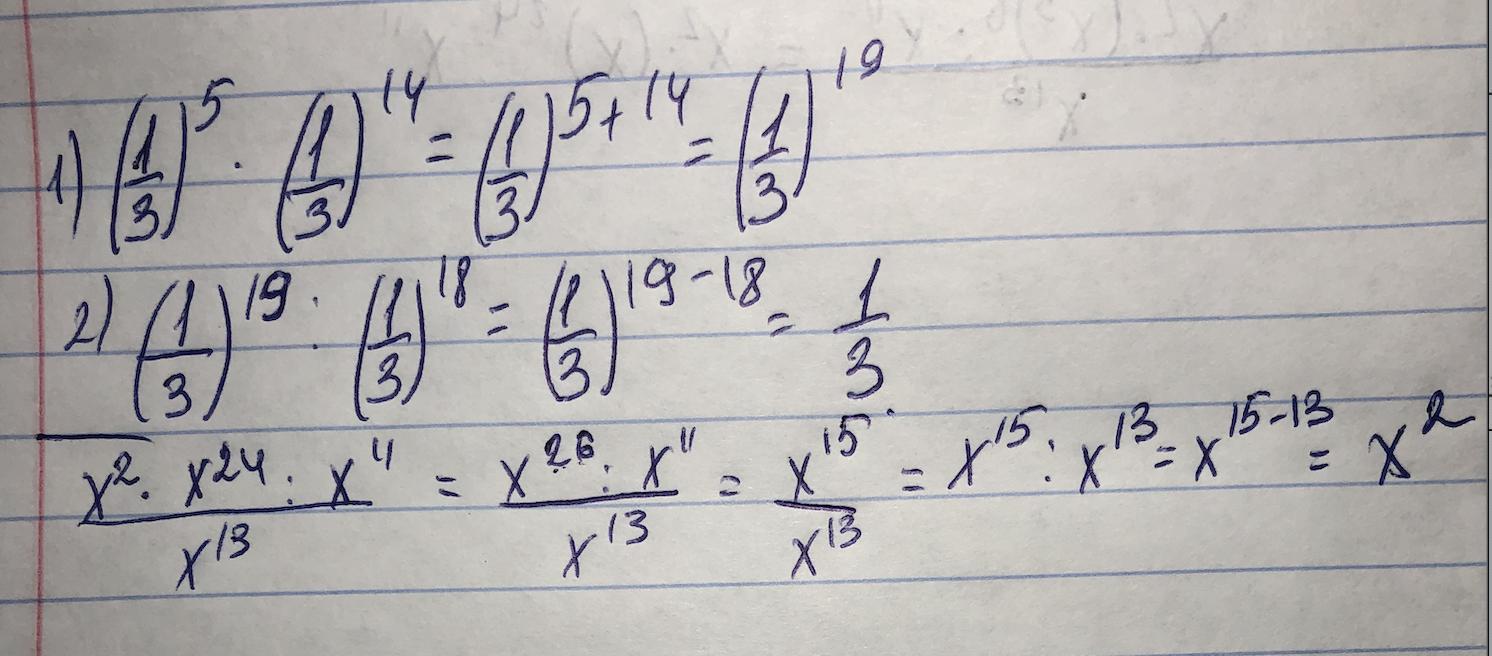 1) (1/3)^5 · (1/3)^14 = (1/3)^5+14 = (1/3)^19
2) (1/3)^19 : (1/3)^18 = (1/3)^19-18 = 1/3
x^2 · x^24 : x^11 / x^13 = x^26 : x^11 / x^13 = x^15 / x^13 = x^15 : x^13 = x^15-13 = x^2